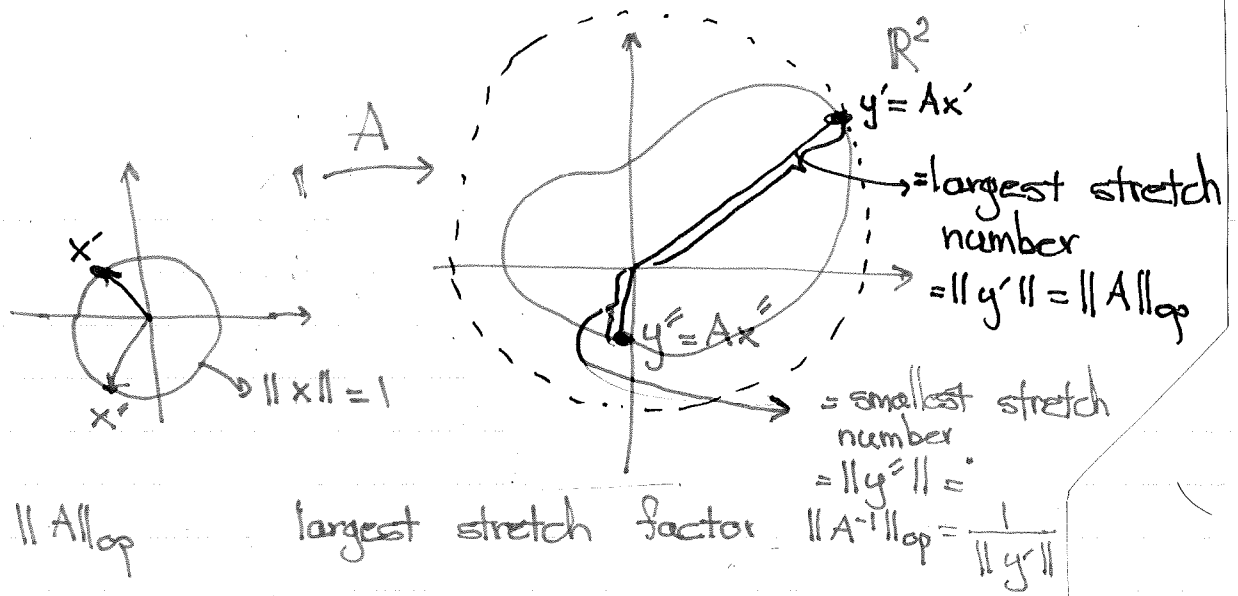 ℝ²
A
y′ = Ax′
= largest stretch
number
= || y′ || = || A ||op
x′
x″
|| x || = 1
y″ = Ax″
= smallest stretch
number
= || y″ || =
|| A ||op largest stretch factor || A⁻¹ ||op = 1 / || y′ ||